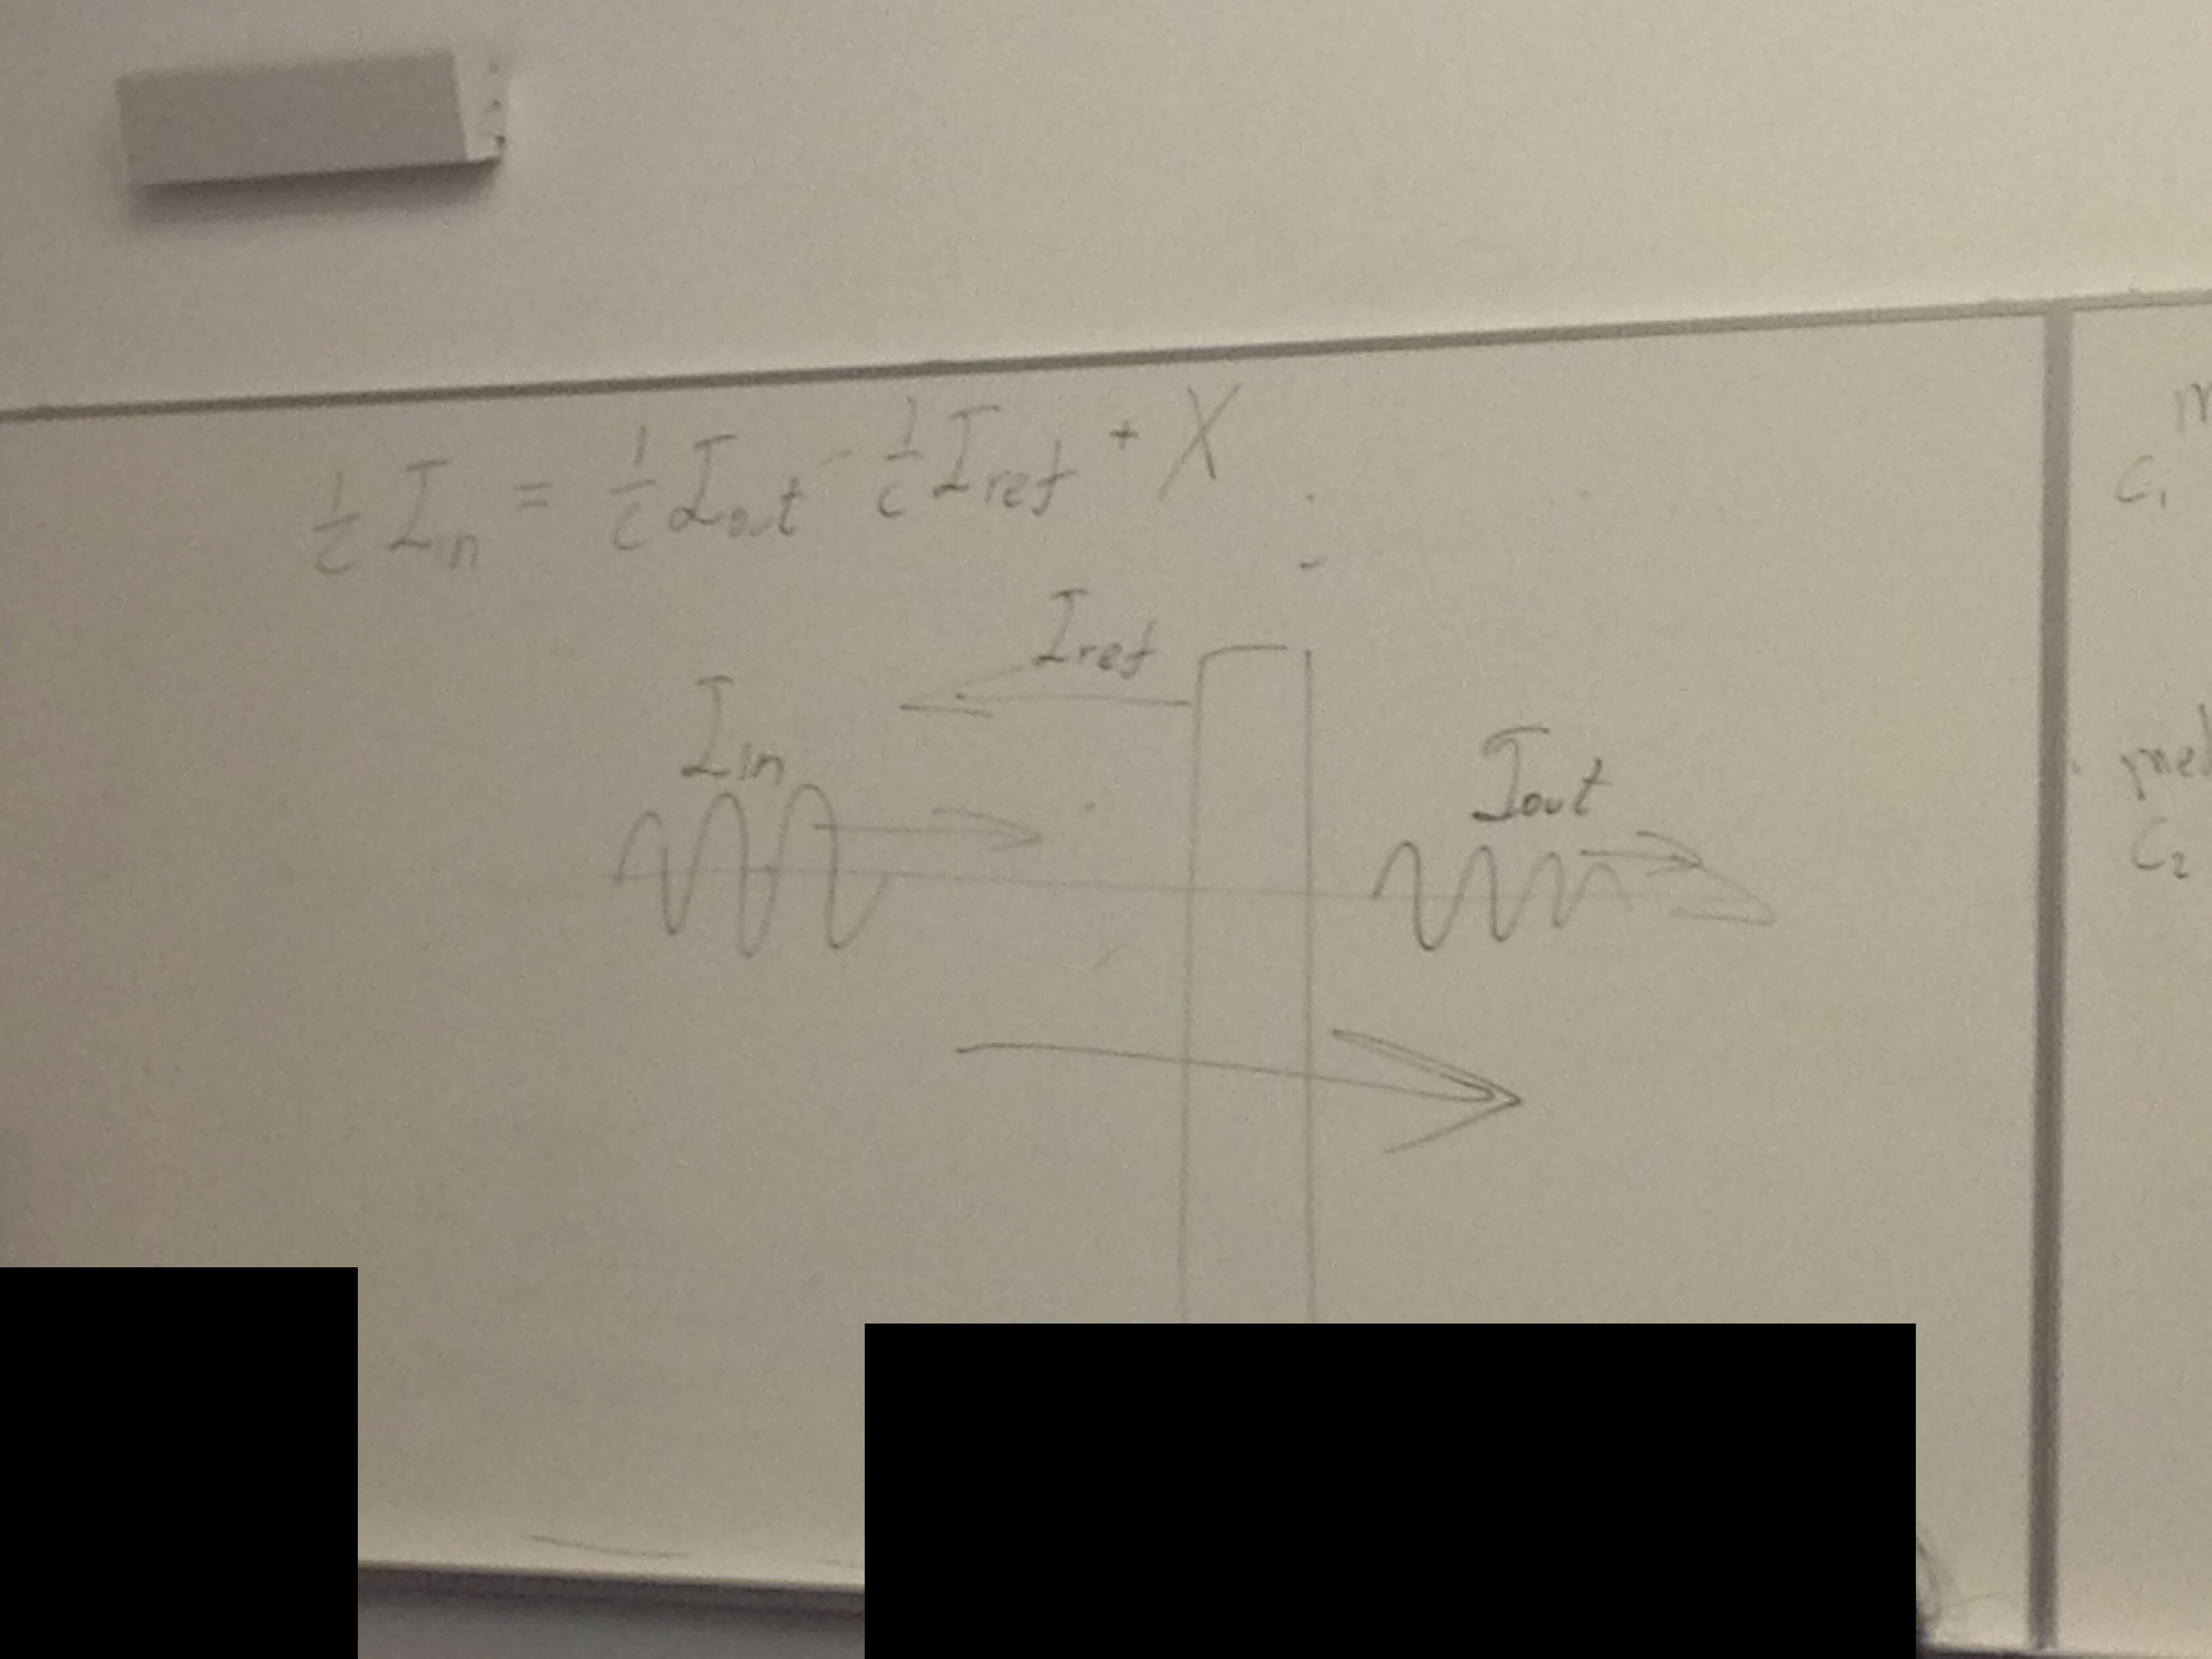 1/c I_in = 1/c I_out - 1/c I_ref + X
I_ref
I_in
I_out
C_1
C_2